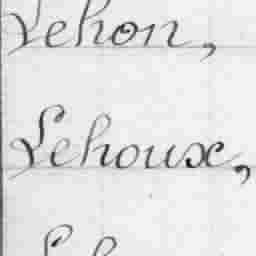 Lehon,
Lehoux,